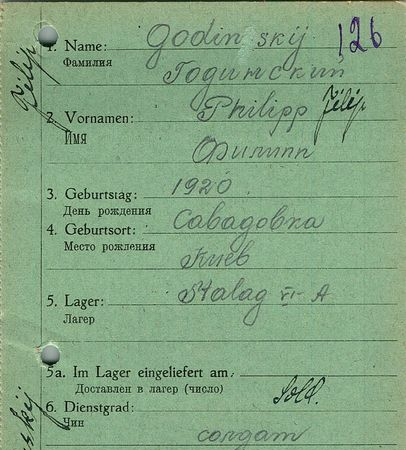 1. Name: Godinskij 126
Фамилия Годинский
2. Vornamen: Philipp Filip
Имя Филипп
3. Geburtstag: 1920
День рождения
4. Geburtsort: Савадовка
Место рождения Киев
5. Lager: Stalag VI-A
Лагерь
5a. Im Lager eingeliefert am:
Доставлен в лагерь (число)
6. Dienstgrad: Sold.
Чин солдат
Filip
skij